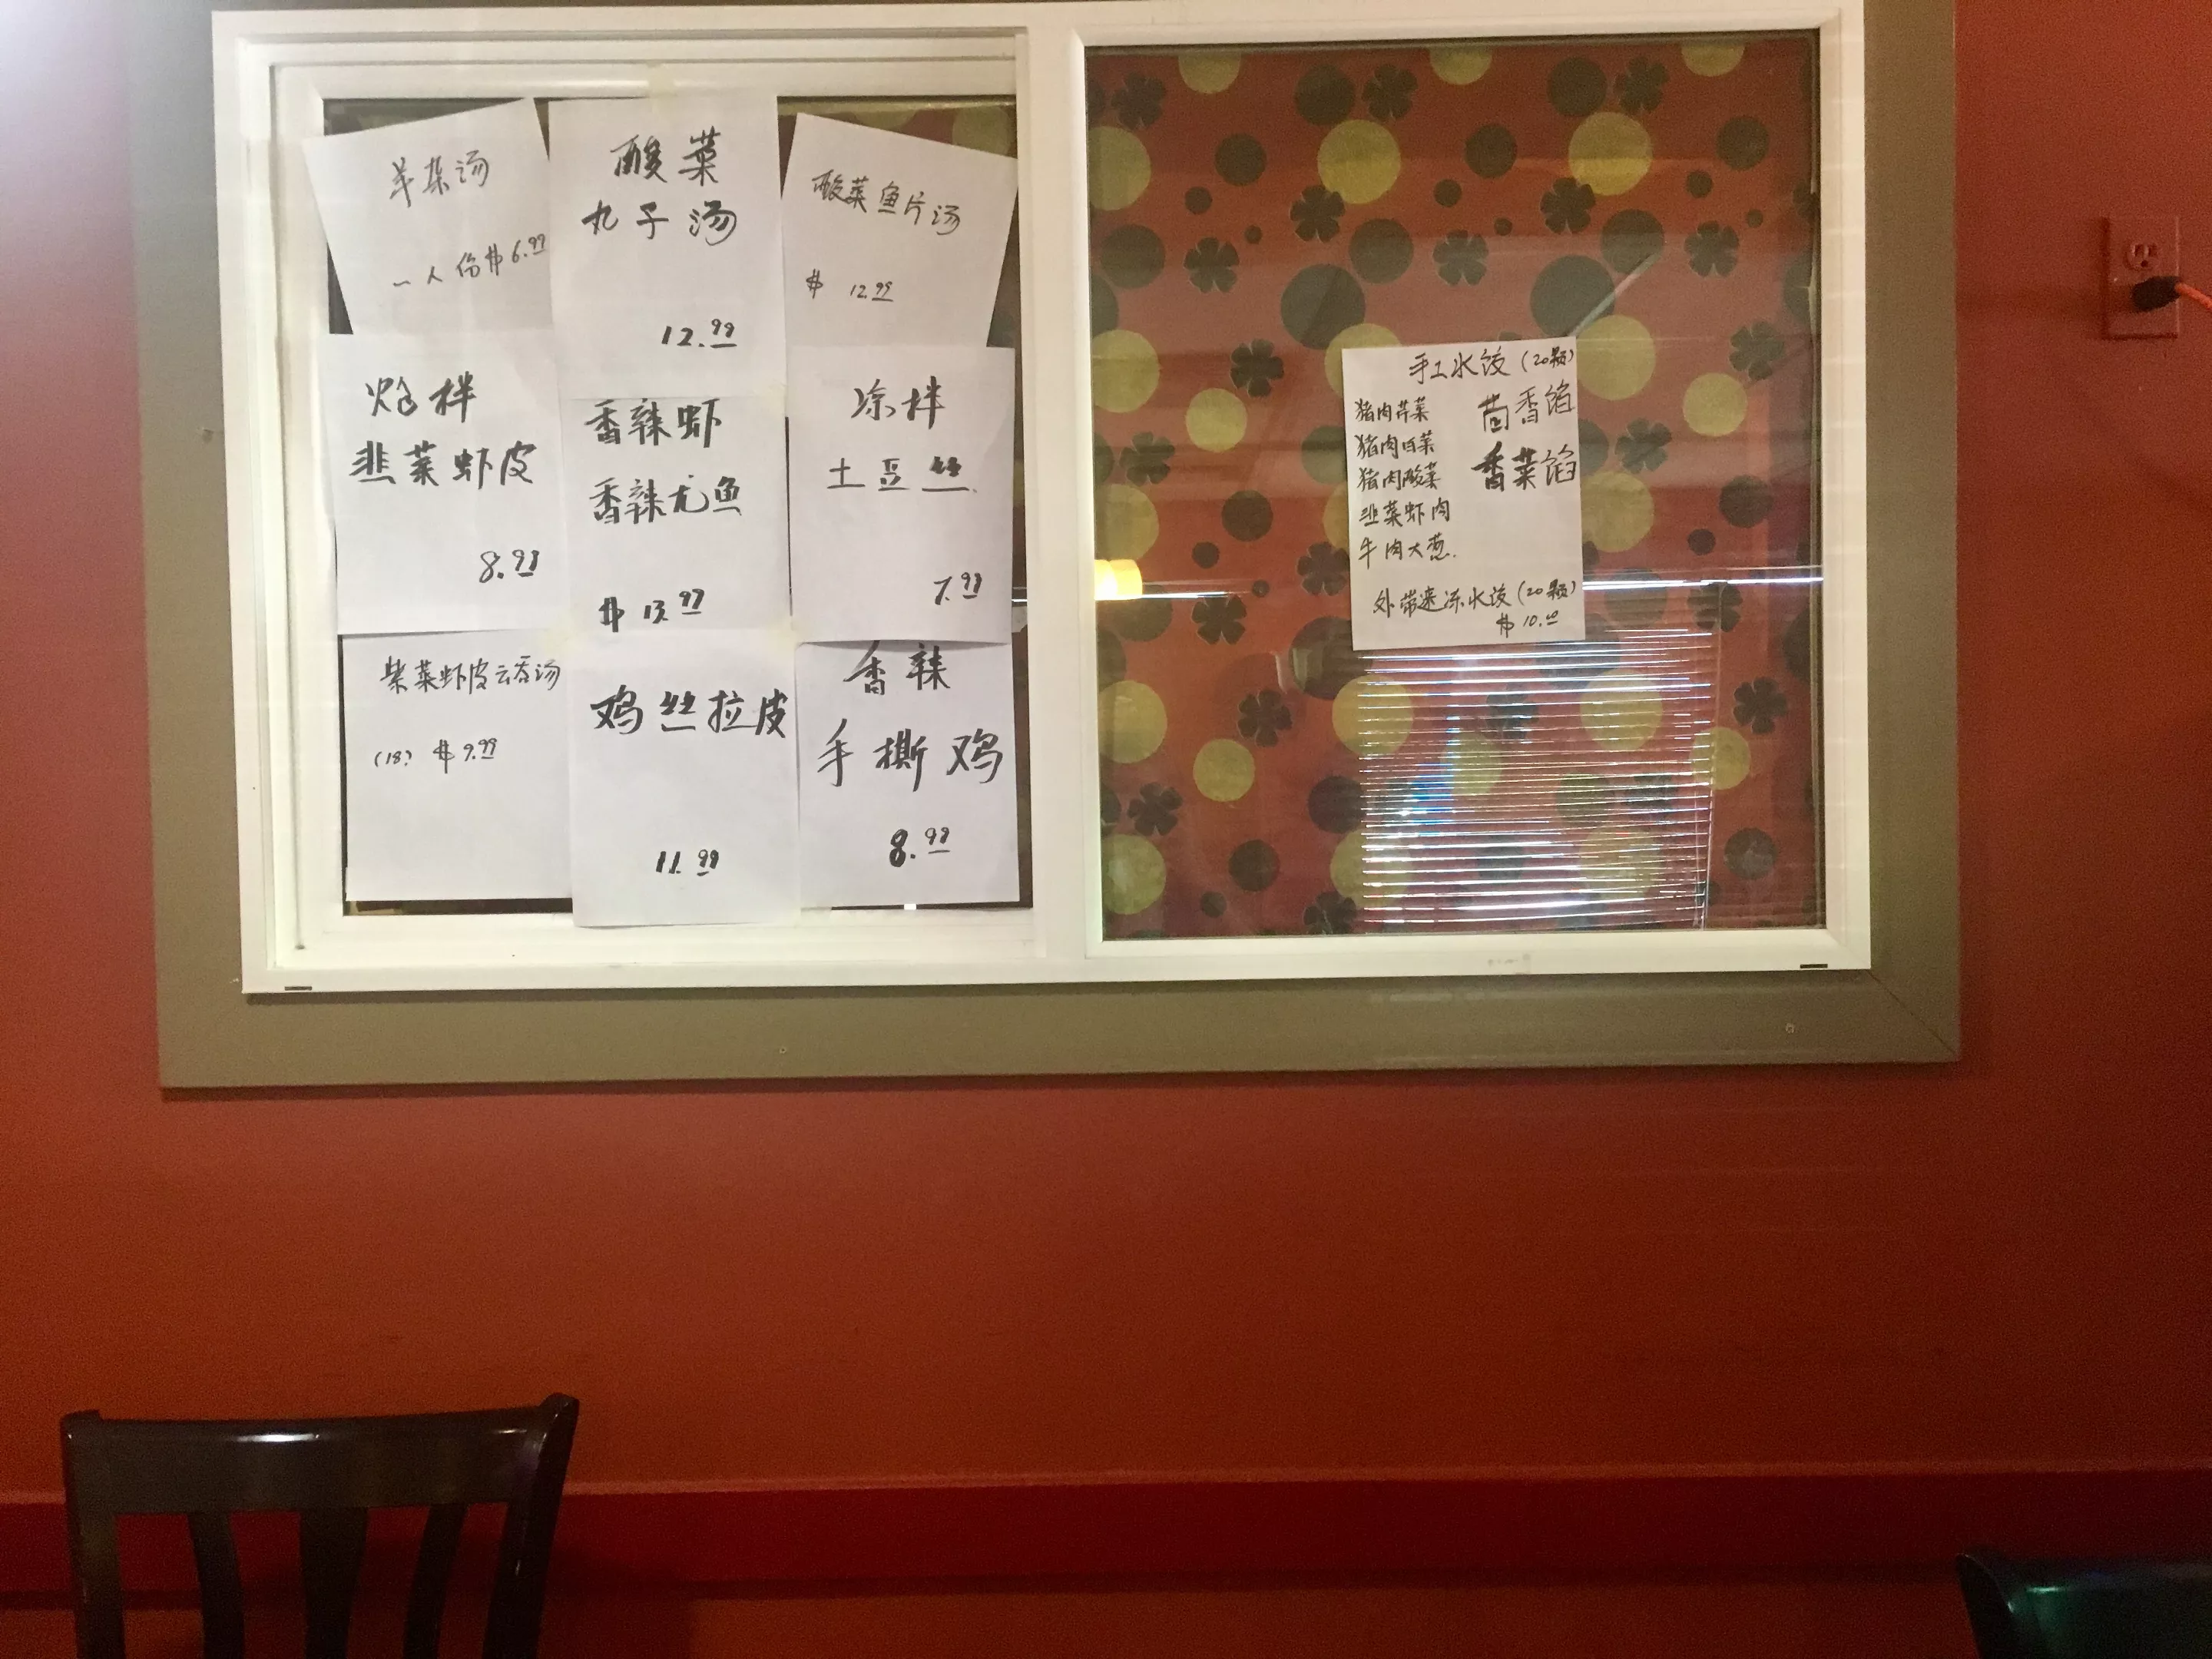 羊杂汤
一人份$6.99
酸菜
丸子汤
12.99
酸菜鱼片汤
$ 12.99
炝拌
韭菜虾皮
8.99
香辣虾
香辣尤鱼
$ 13.99
凉拌
土豆丝
7.99
紫菜虾皮云吞汤
(18) $9.99
鸡丝拉皮
11.99
香辣
手撕鸡
8.99
手工水饺(20颗)
猪肉芹菜
猪肉白菜
猪肉酸菜
韭菜虾肉
牛肉大葱.
茴香馅
香菜馅
外带速冻水饺(20颗)
$ 10.00